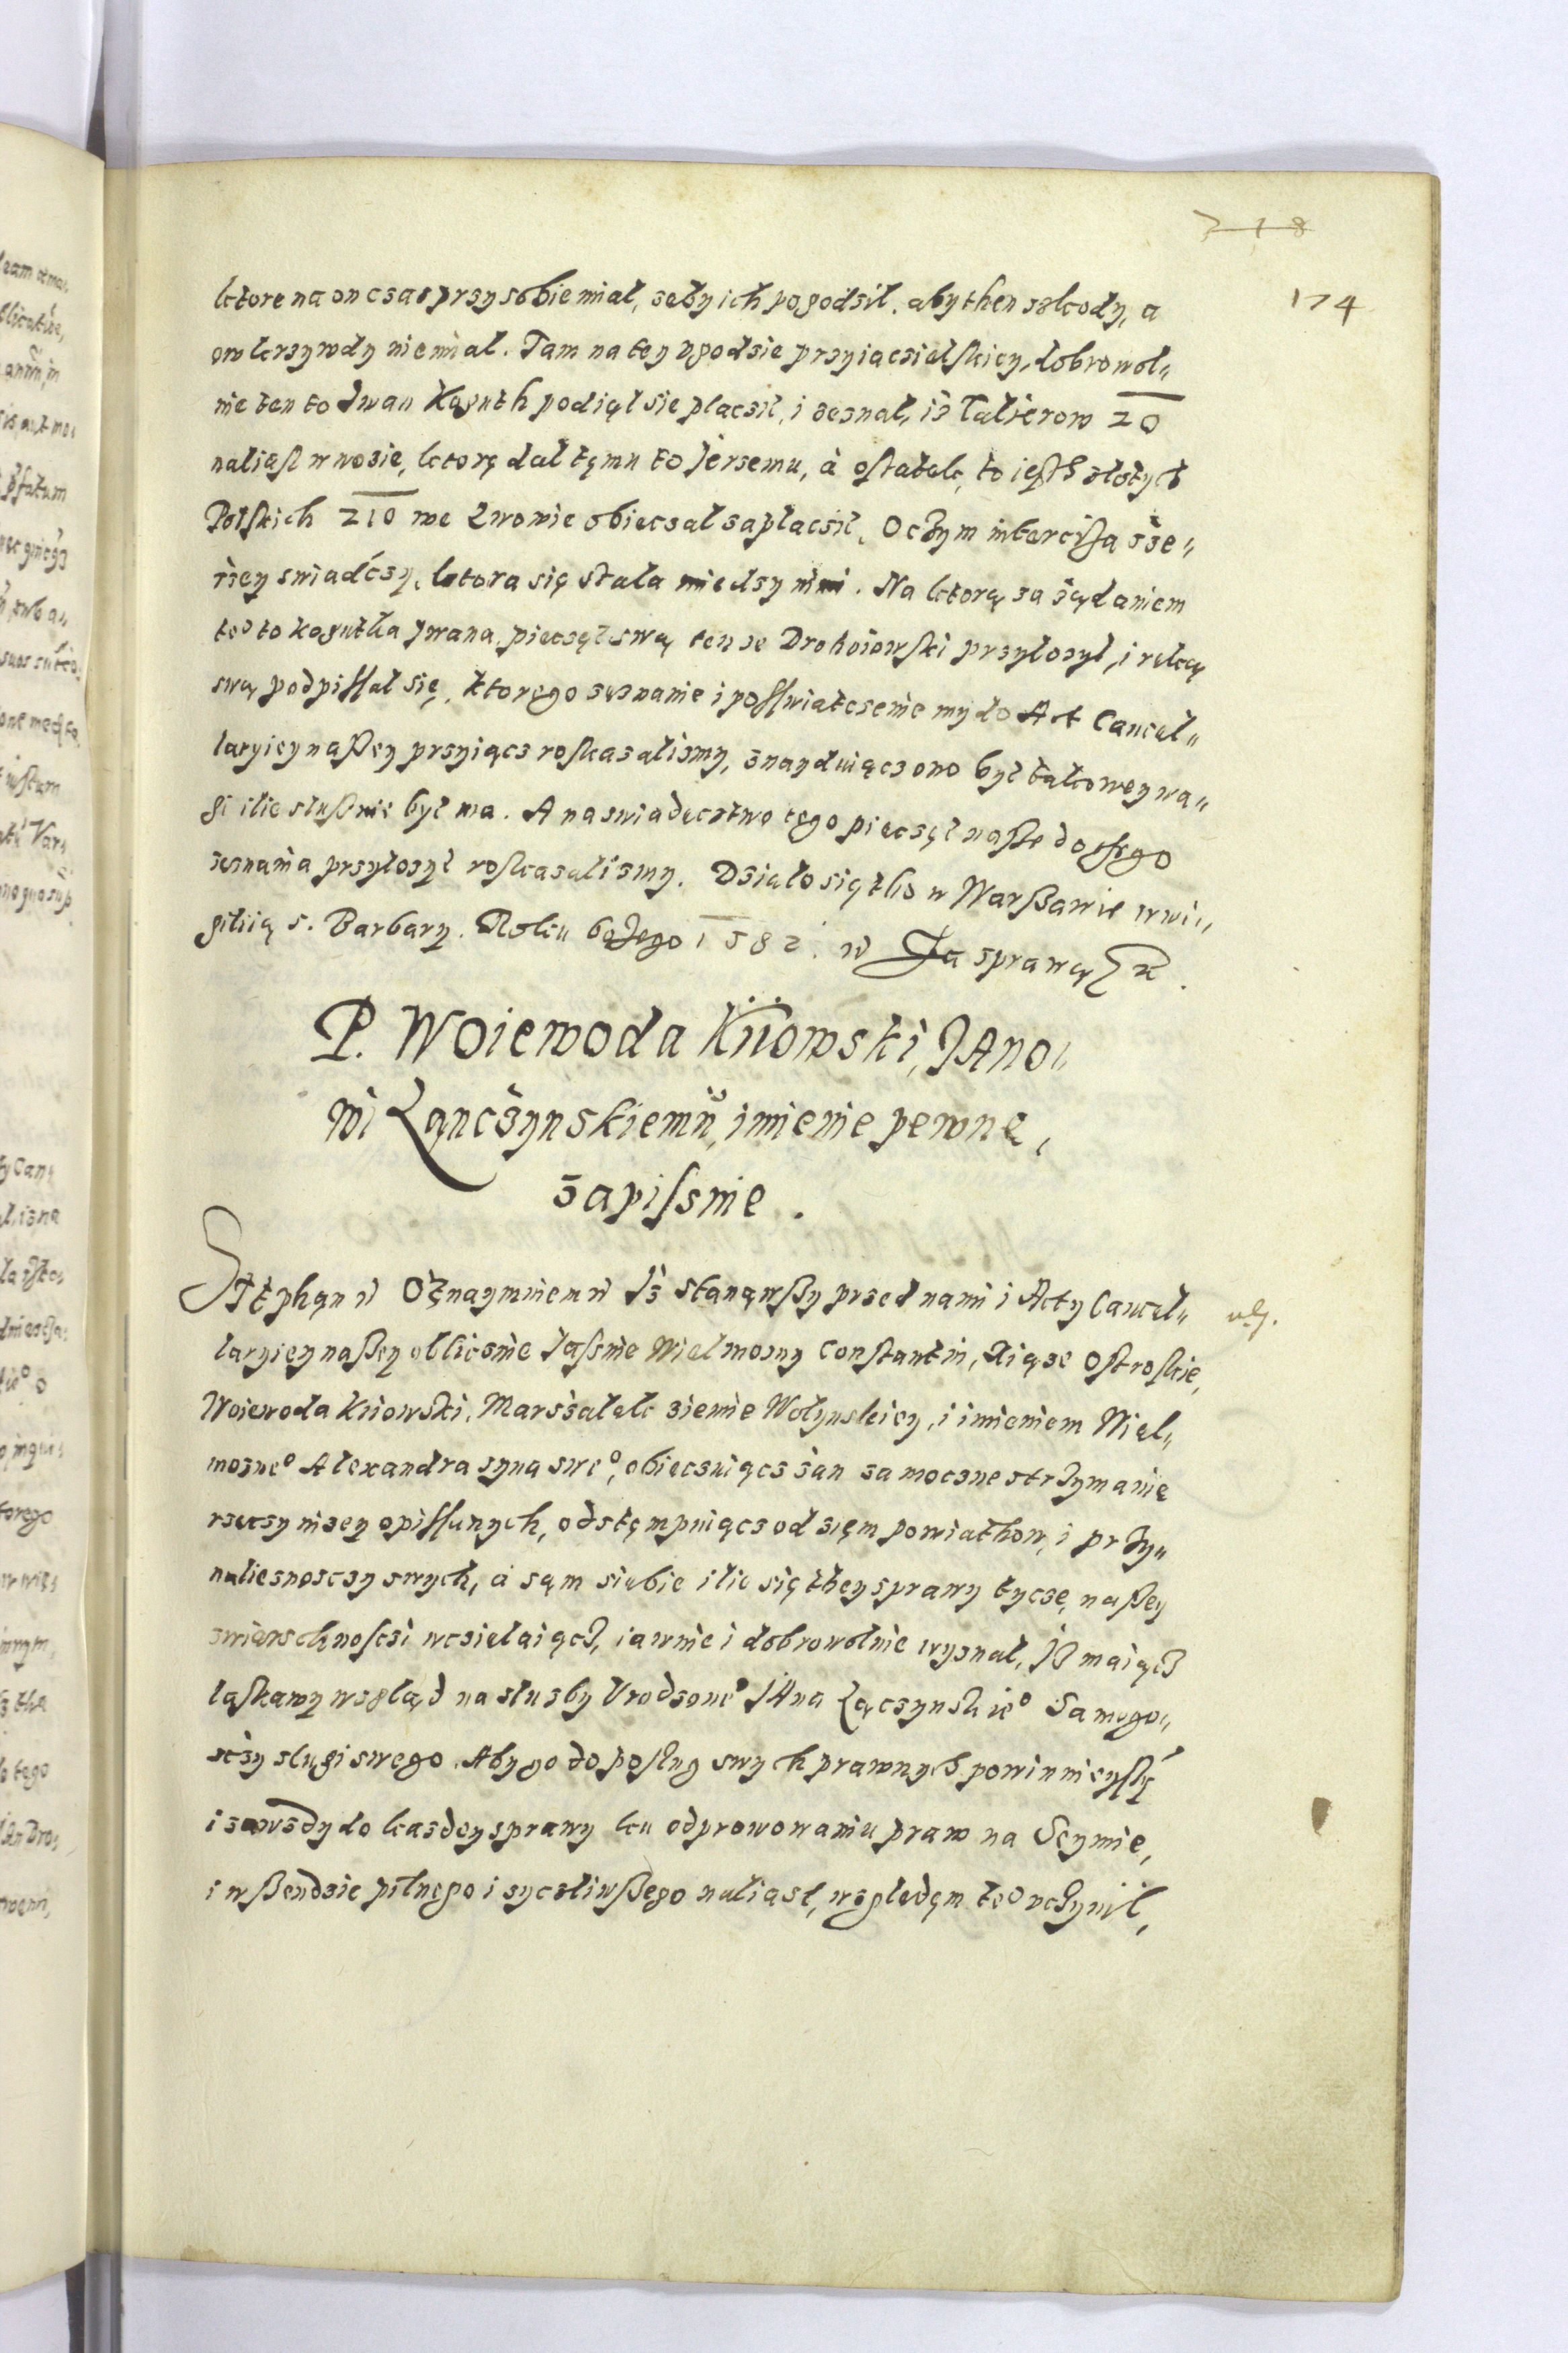 718
174
ktore na on czas przy sobie miał, żeby ich pogodził. aby then szkody, a
ow krzywdy nie miał. Tam na tey ugodzie przyiacielskiey, dobrowol„
nie ten to Iwan Koguth podiął sie płaczić, i zeznał, iż Talierow 20
naliasł w wozie, ktorę dał tęmu to Jerzemu, à ostatek, to iesth złotych
Polskich 210 we Lwowie obieczał zapłaczić, O czym intercisa szze„
rzey swiadczy, ktora się stała miedzy nimi. Na ktorą za żądaniem
te° to kogutha Iwana, pieczęć swą ten ze Drohoiowski przyłożył, i ręką
swą podpissał się, ktorego zęznanie i poswiatczenie my do Act Cancel„
laryiey naszey przyiącz roskazalismy, znayduiącz ono być takowey wa„
gi ilie słusznie być ma. A na swiadectwo tego pieczęć nasze do tego
zeznania przyłożyć roskazalismy. Działo się tho w Warszawie w wi„
giliią s. Barbary. Roku bożego 1582. w Ta sprawą
P. Woiewoda Kiiowski, JAno„
wi Łąnczynskiemu, imienie pewne,
zapisznie.
STęphąn ŵ Oznaymuiemŵ Iż stanąwszy przed nami i Acty Cancel„
laryiey naszey oblicznie Jasnie Wielmozny Constantin, Xiąże Ostroskie,
Woiewoda Kiiowski, Marszałek ziemie Wołynskiey, i imieniem Wiel„
mozne° Alexandra syna swe°, obiecuiącz zań za moczne strzymanie
rzeczy nizey opissanych, odstęmpuiącz od zięm powiathow, i przy„
naliesnosczy swych, à sąm siebie ilie się they sprawy tycze, naszey
zwierzchnosczi wczielaiącz, iawnie i dobrowolnie wyznał, Iż maiącz
łaskawy wzgląd na służby Vrodzone° JAna Łączynskie° Samego„
sczy sługi swego. Aby go do posług swych prawnych powinnieysze
i zawżdy do kazdey sprawy ku odprowowaniu praw na Seymie,
i wszendzie pilnego i zyczliwszego naliasł, względęm te° uczynił,